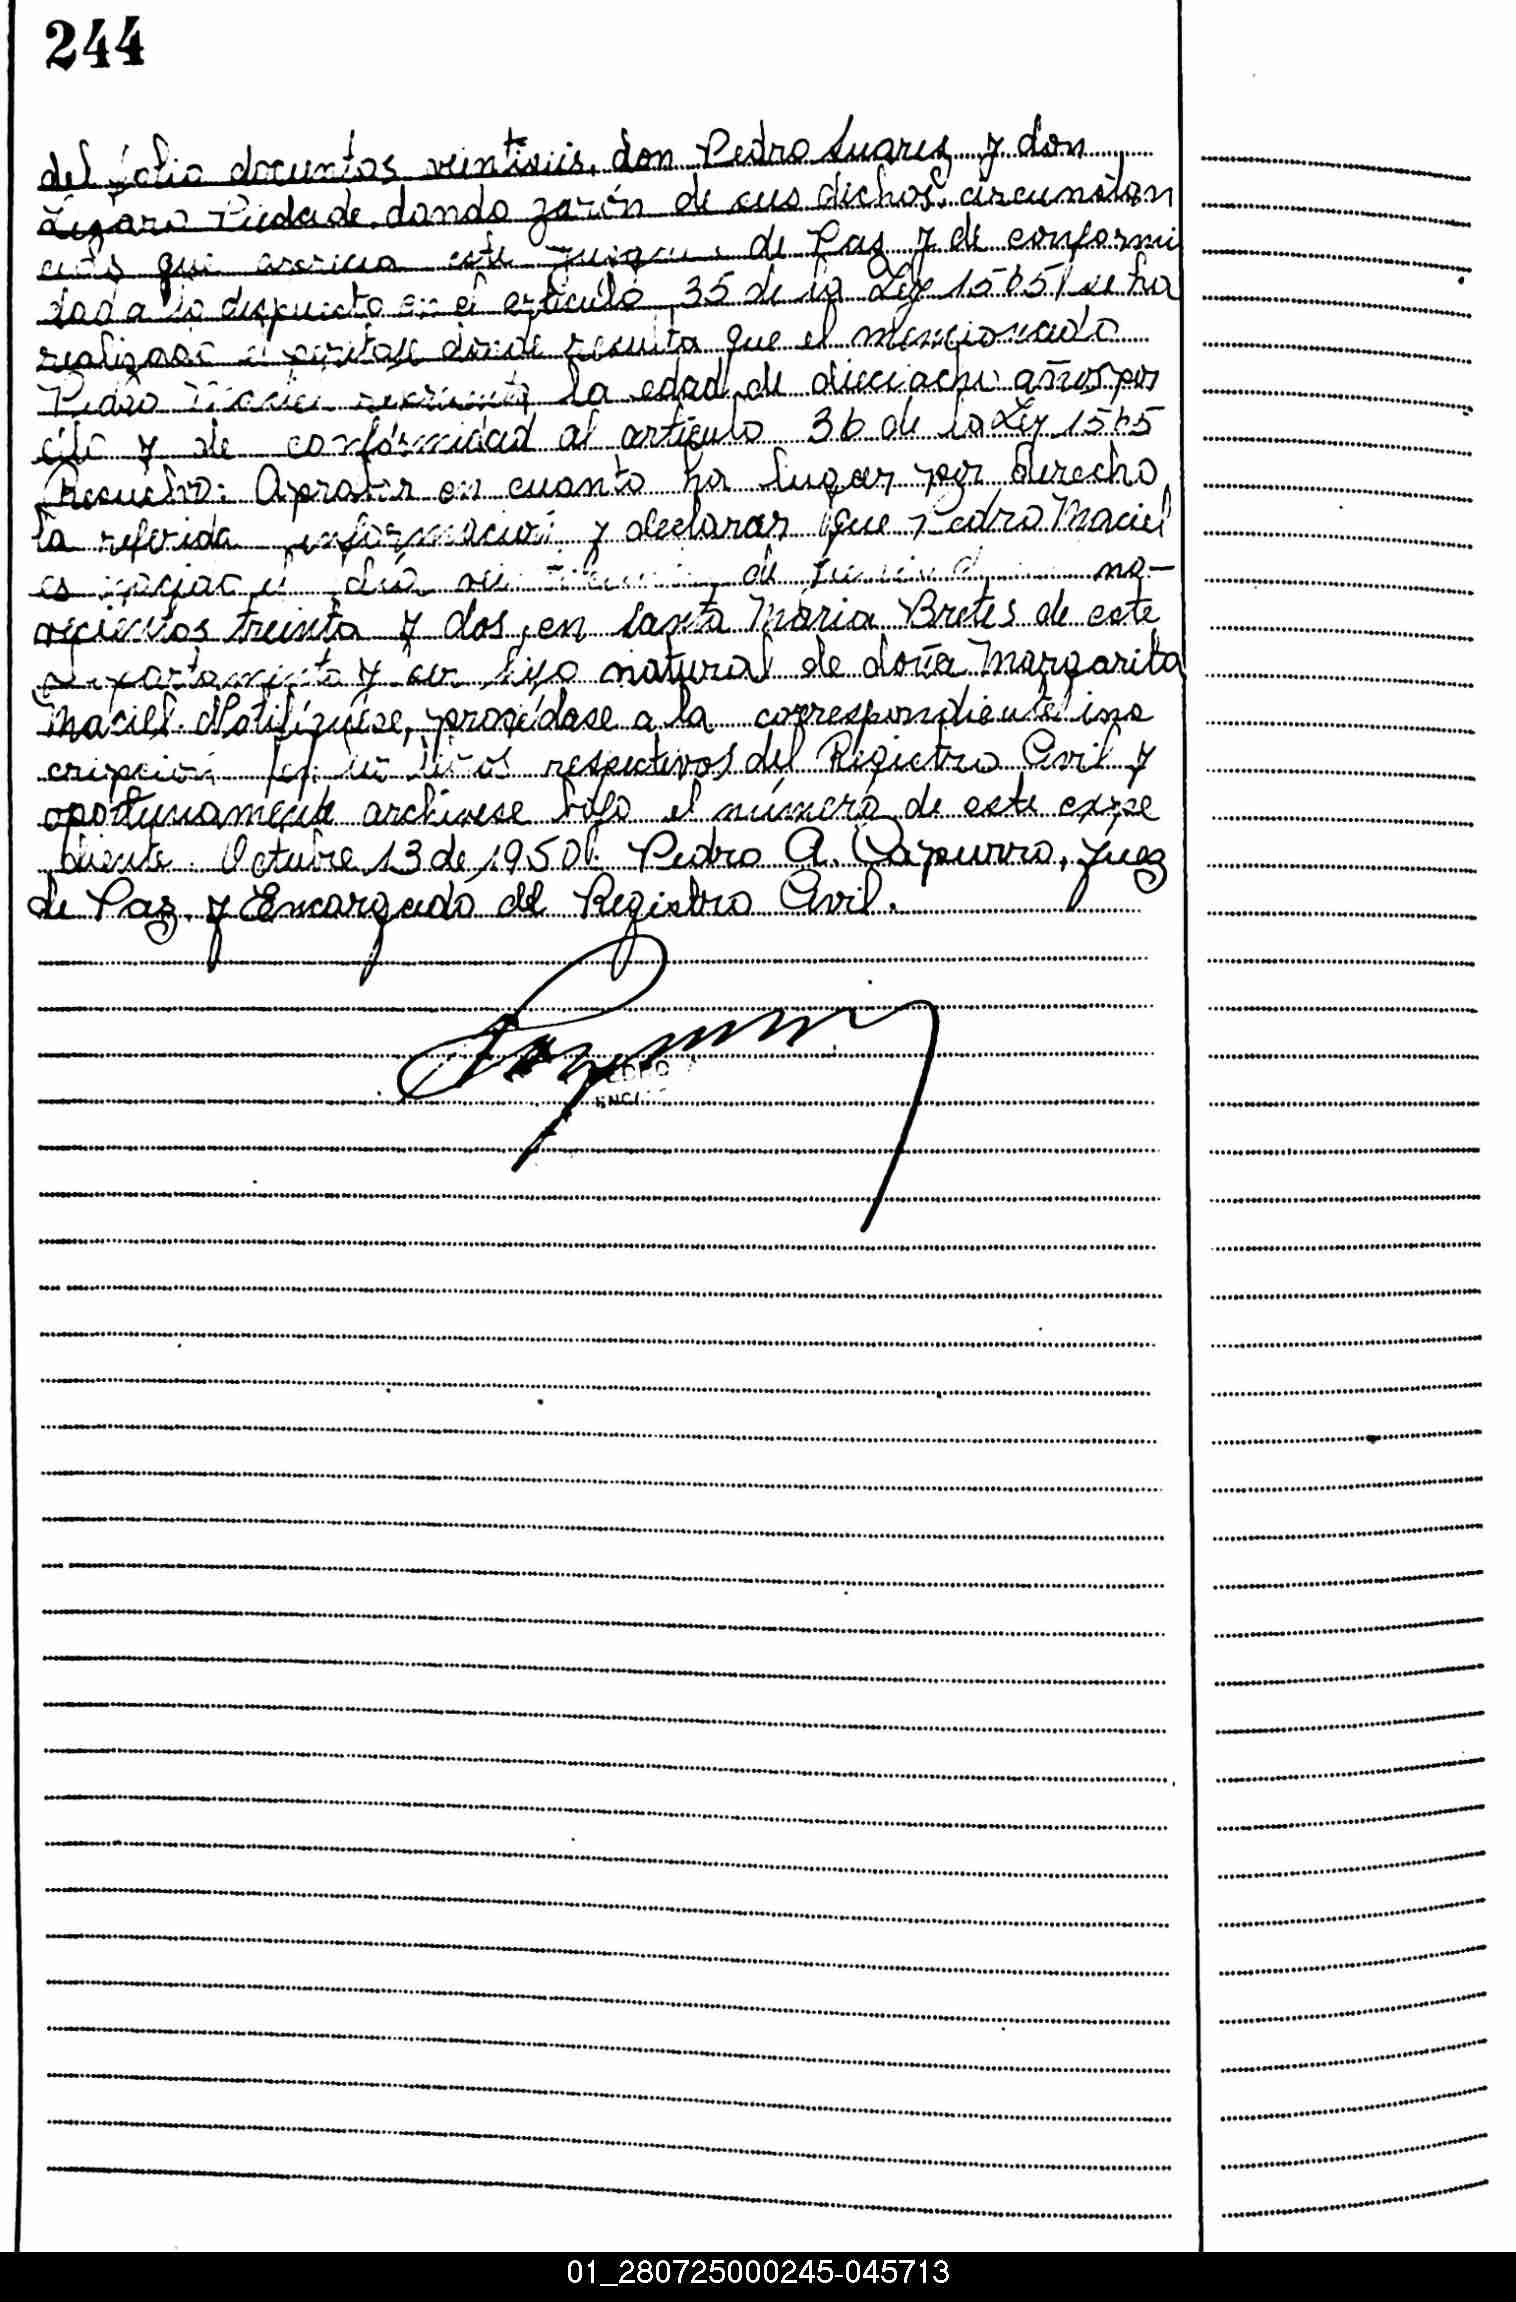 244
del folio docuntos veintiseis, don Pedro Suarez y don
Lázaro Piedade, dando zazón de sus dichos, circunstan
cias que aprecia este de Paz y de conformi
dad a lo dispuesto en el artículo 35 de la Ley 1565/ se ha
realizado el peritaje donde resulta que el mencionado
Pedro Maciel representa la edad de dieciocho años por
ello y de conformidad al artículo 36 de la Ley 1565
Resuelvo: Aprobar en cuanto ha lugar por derecho
la referida información y declarar que Pedro Maciel
es nacido el día de no-
vecientos treinta y dos, en Santa María Bretes de este
departamento y ser hijo natural de doña Margarita
Maciel. Notifíquese, procédase a la correspondiente ins
cripción en los libros respectivos del Registro Civil y
oportunamente archívese bajo el número de este expe
diente. Octubre 13 de 1950. Pedro A. Capurro, Juez
de Paz y Encargado del Registro Civil.
PEDRO A
ENC
01_280725000245-045713